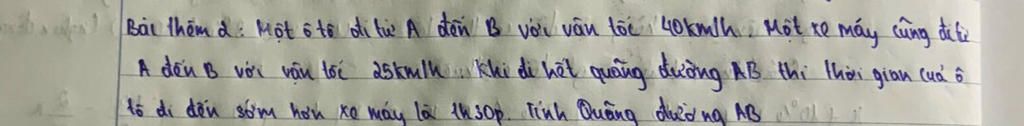 Bài thêm 2: Một ô tô đi từ A đến B với vận tốc 40km/h. Một xe máy cũng đi từ
A đến B với vận tốc 25km/h. Khi đi hết quãng đường AB thì thời gian của ô
tô đi đến sớm hơn xe máy là 1h30p. Tính Quãng đường AB